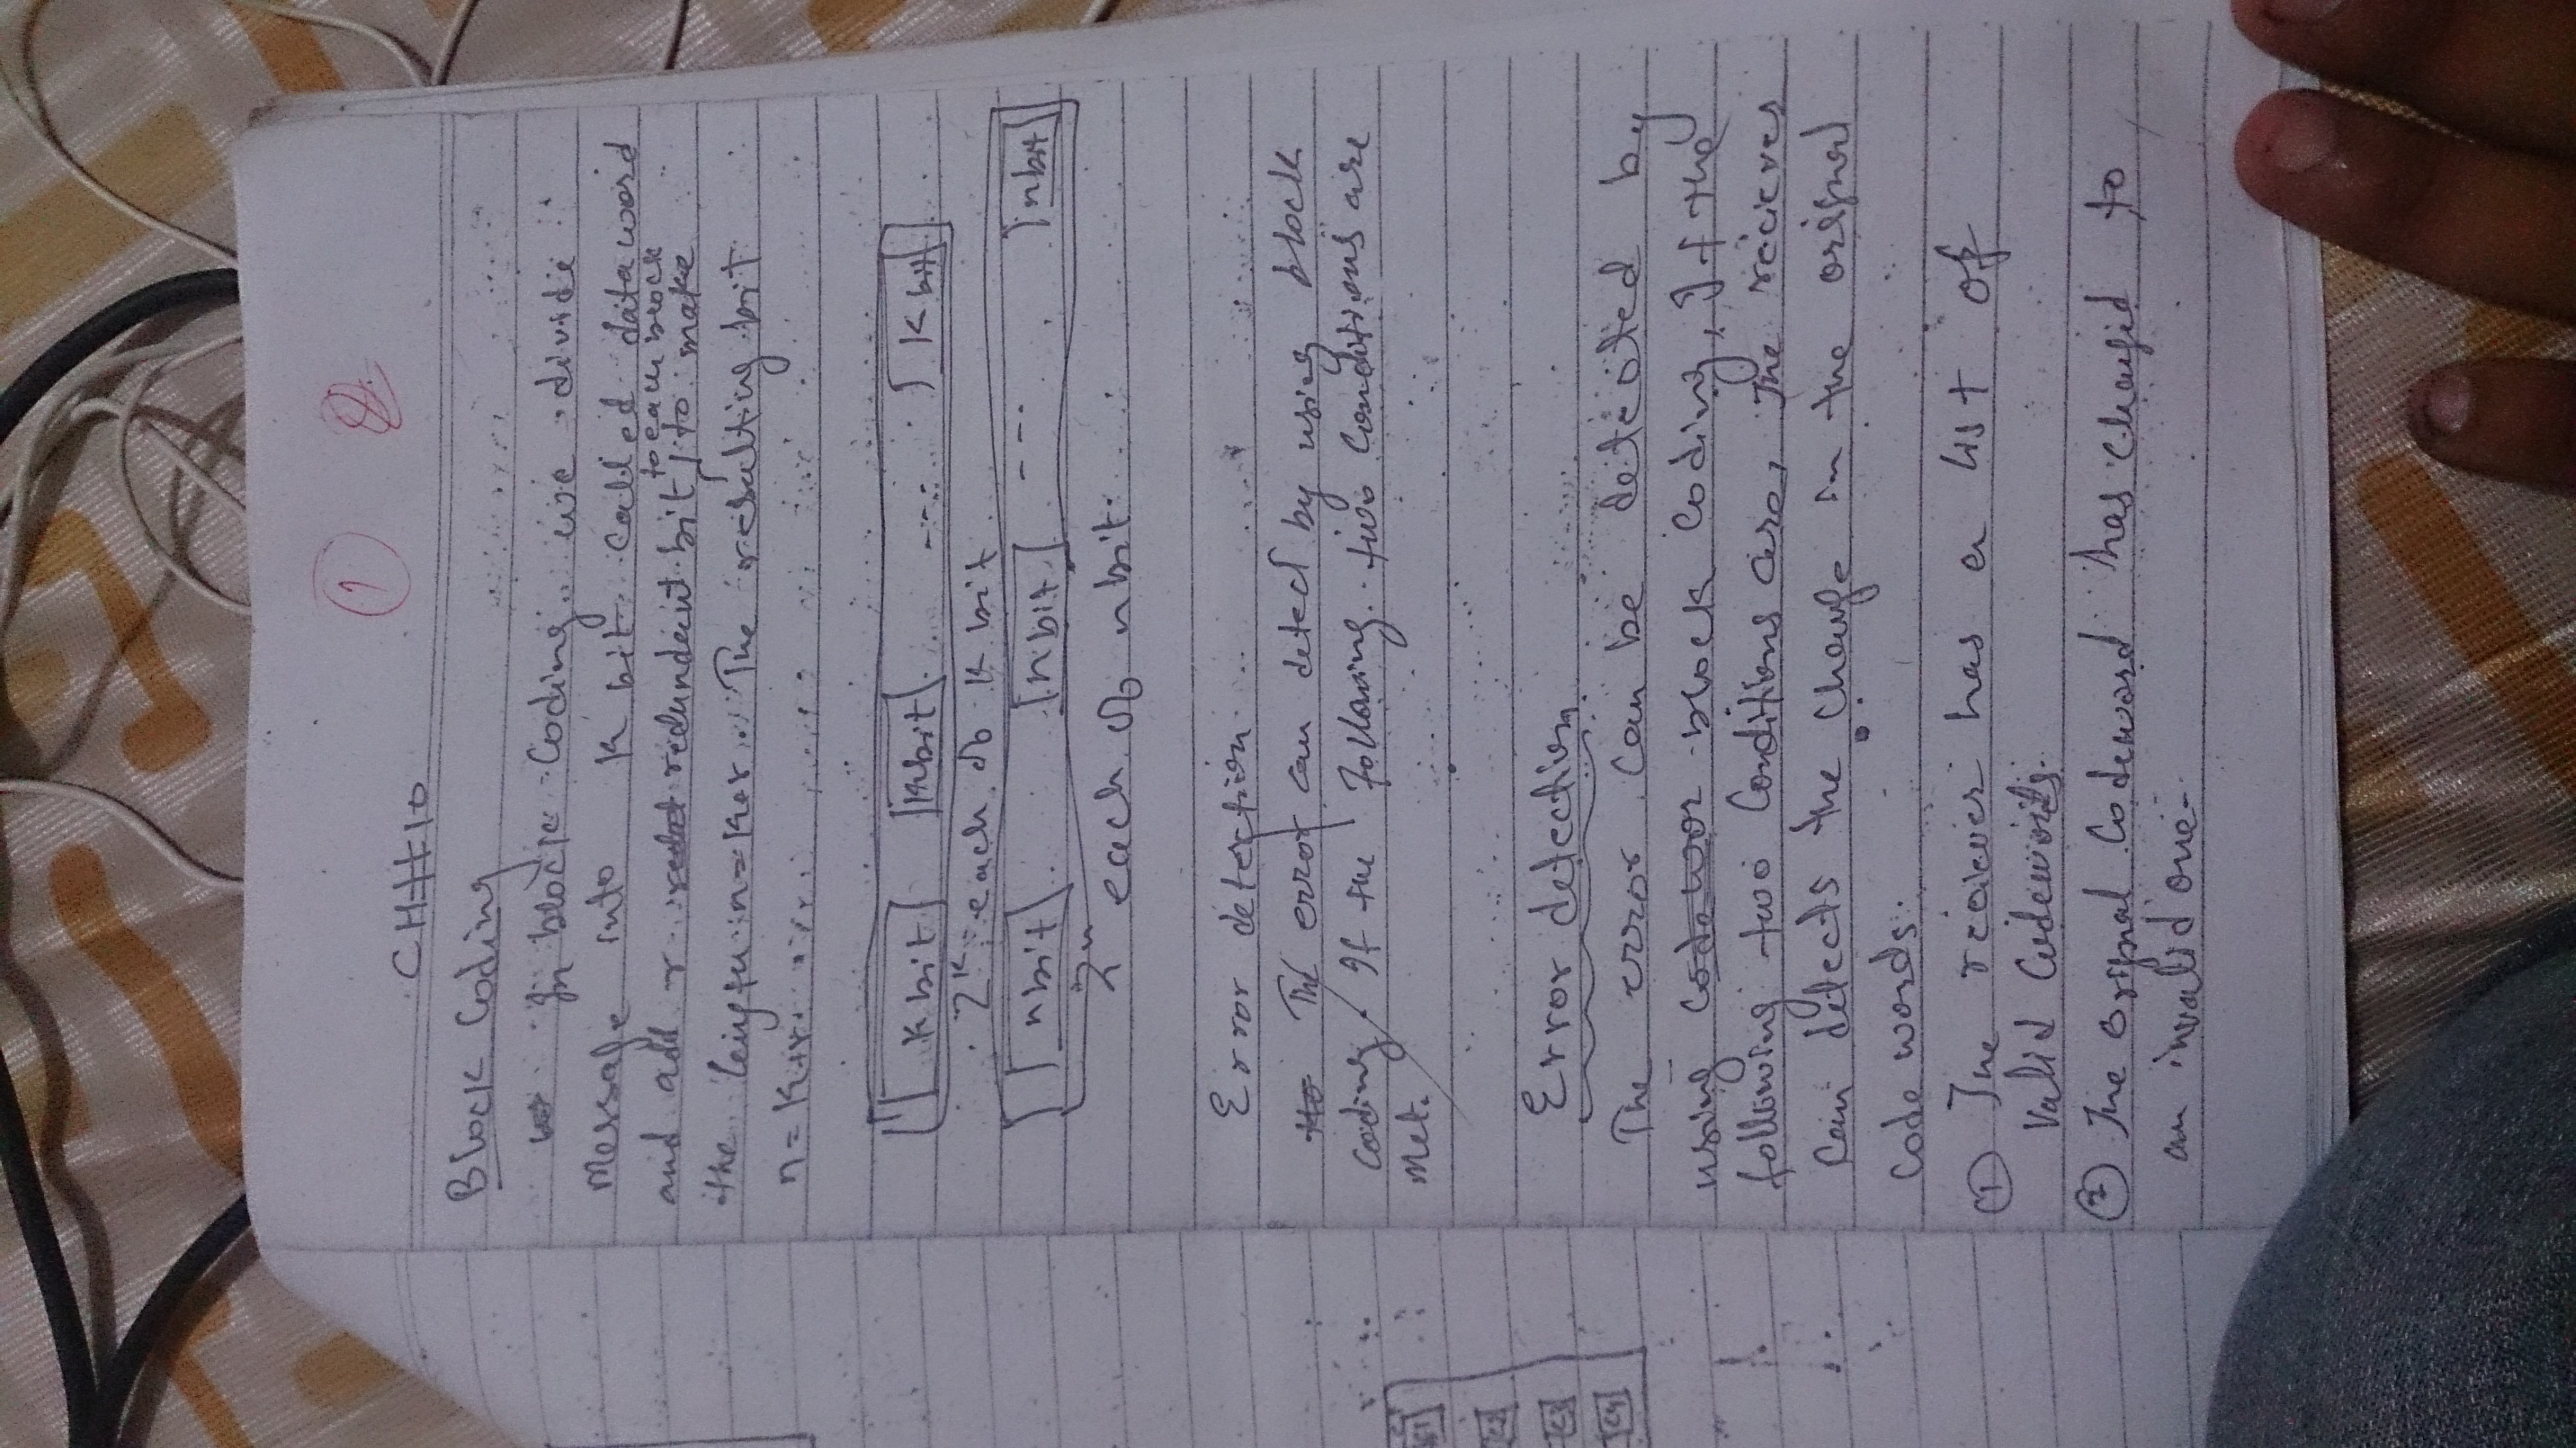 1
CH#10
Block Coding
In block Coding we divide
message into K bit called dataword
and add r redundant bit to each block to make
the length n=K+r. The resulting bit
n=K+r.
K bit K bit ---- K bit
2^K each of K bit
n bit n bit --- n bit
2^n each of n bit
Error detection
The error can detect by using block
coding. If the following two Conditions are
Met.
Error detection
The error Can be detected by
using block Coding, If the
following two Conditions are, The reciever
Can detects the change in the orignal
Code words.
① The reciever has a list of
Valid Codewords.
② The orignal Codeword has changed to
an invalid one.